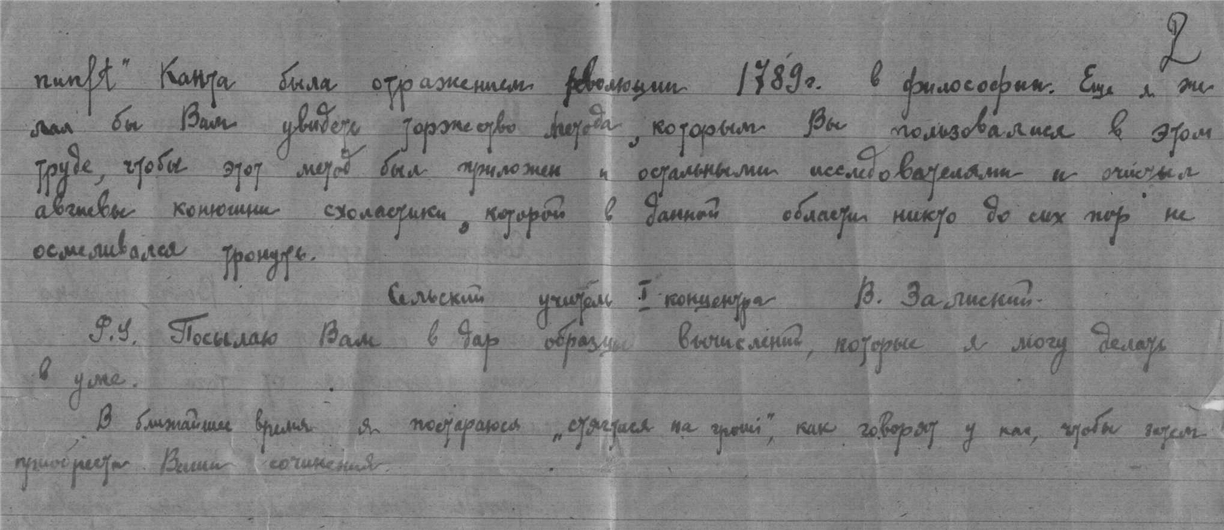 2
nunft" Канта была отражением революции 1789 г. в философии. Еще я же
лал бы Вам увидеть торжество метода, которым Вы пользовалися в этом
труде, чтобы этот метод был приложен и остальными исследователями и очистил
авгиевы конюшни схоластики, которой в данной области никто до сих пор не
осмеливался тронуть.
Сельский учитель I концентра В. Залиский.
P.S. Посылаю Вам в дар образцы вычислений, которые я могу делать
в уме.
В ближайшее время я постараюся „стягтися на гроші", как говорят у нас, чтобы затем
приобрести Ваши сочинения.